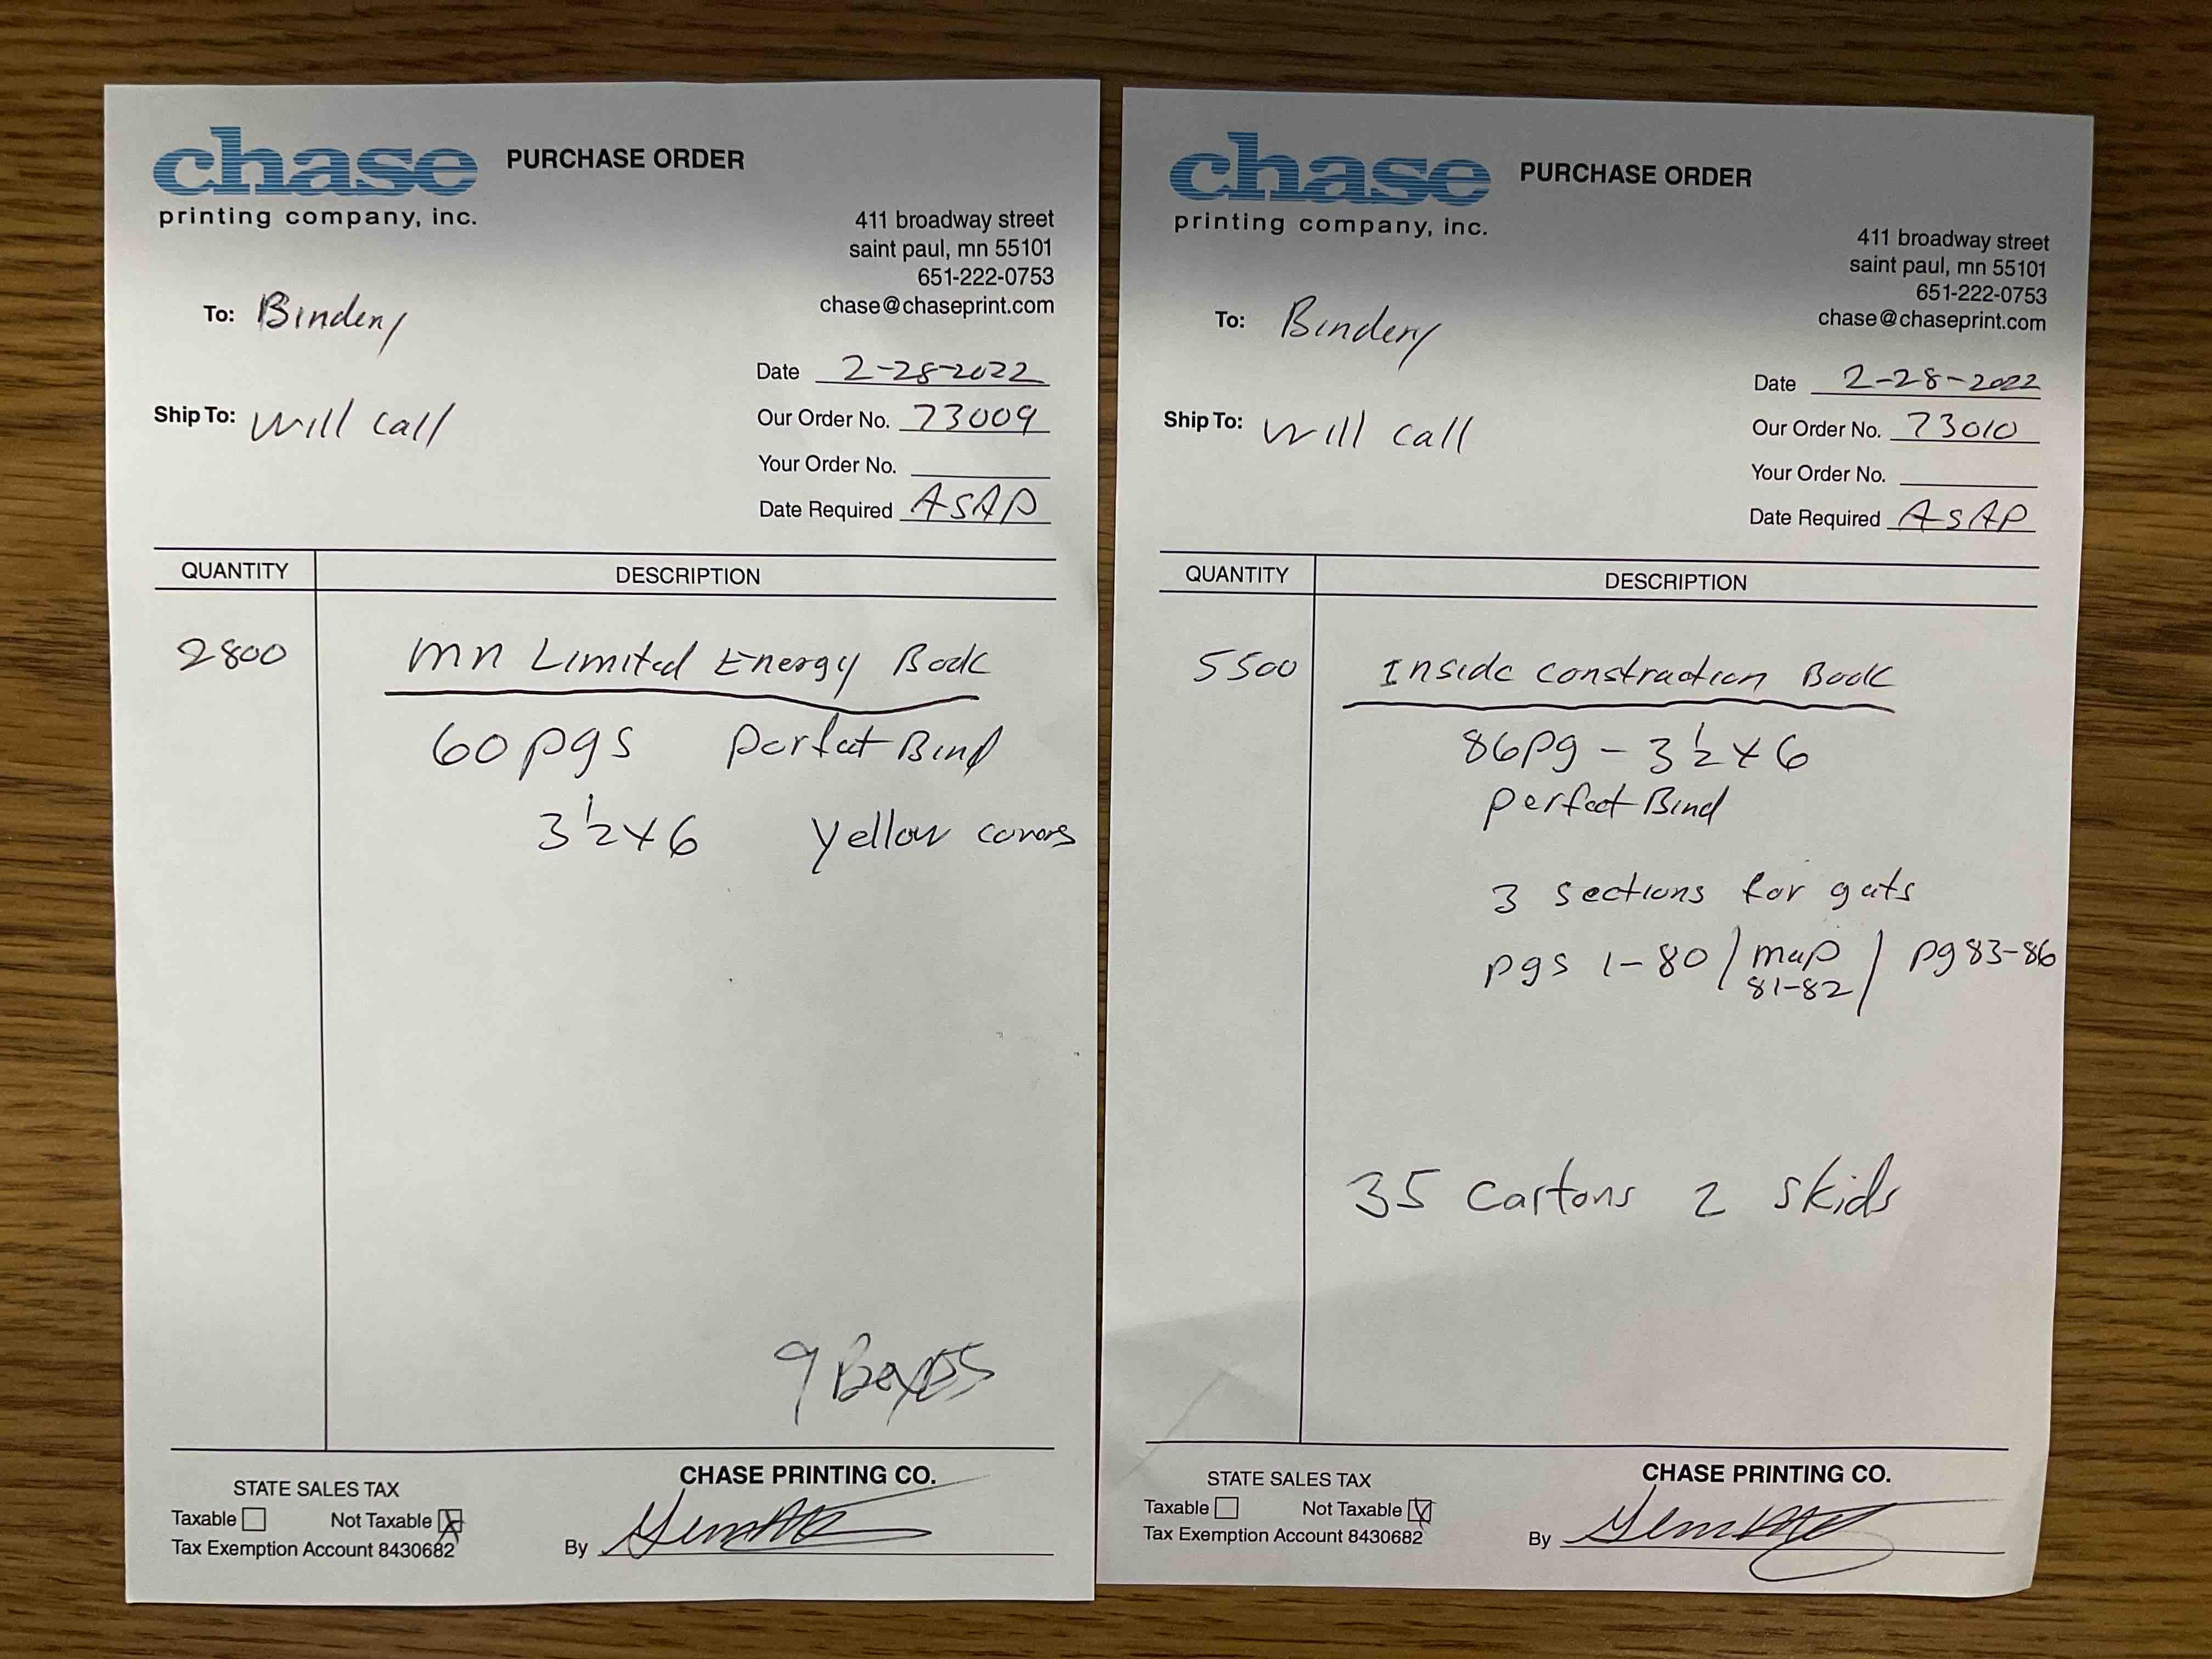 chase PURCHASE ORDER
printing company, inc.
411 broadway street
saint paul, mn 55101
651-222-0753
chase@chaseprint.com
To: Bindery
Ship To: Will Call
Date 2-28-2022
Our Order No. 73009
Your Order No.
Date Required ASAP
QUANTITY DESCRIPTION
2800 mn Limited Energy Book
60 pgs perfect Bind
3 1/2 x 6 yellow covers
9 Boxes
STATE SALES TAX
Taxable Not Taxable
Tax Exemption Account 8430682
CHASE PRINTING CO.
By
chase PURCHASE ORDER
printing company, inc.
411 broadway street
saint paul, mn 55101
651-222-0753
chase@chaseprint.com
To: Bindery
Ship To: Will Call
Date 2-28-2022
Our Order No. 73010
Your Order No.
Date Required ASAP
QUANTITY DESCRIPTION
5500 Inside Construction Book
86pg - 3 1/2 x 6
perfect Bind
3 sections for guts
pgs 1-80 / map / pg 83-86
81-82
35 Cartons 2 skids
STATE SALES TAX
Taxable Not Taxable
Tax Exemption Account 8430682
CHASE PRINTING CO.
By